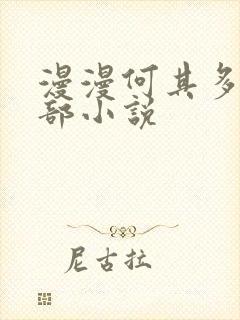 漫漫何其多
部小说
尼古拉